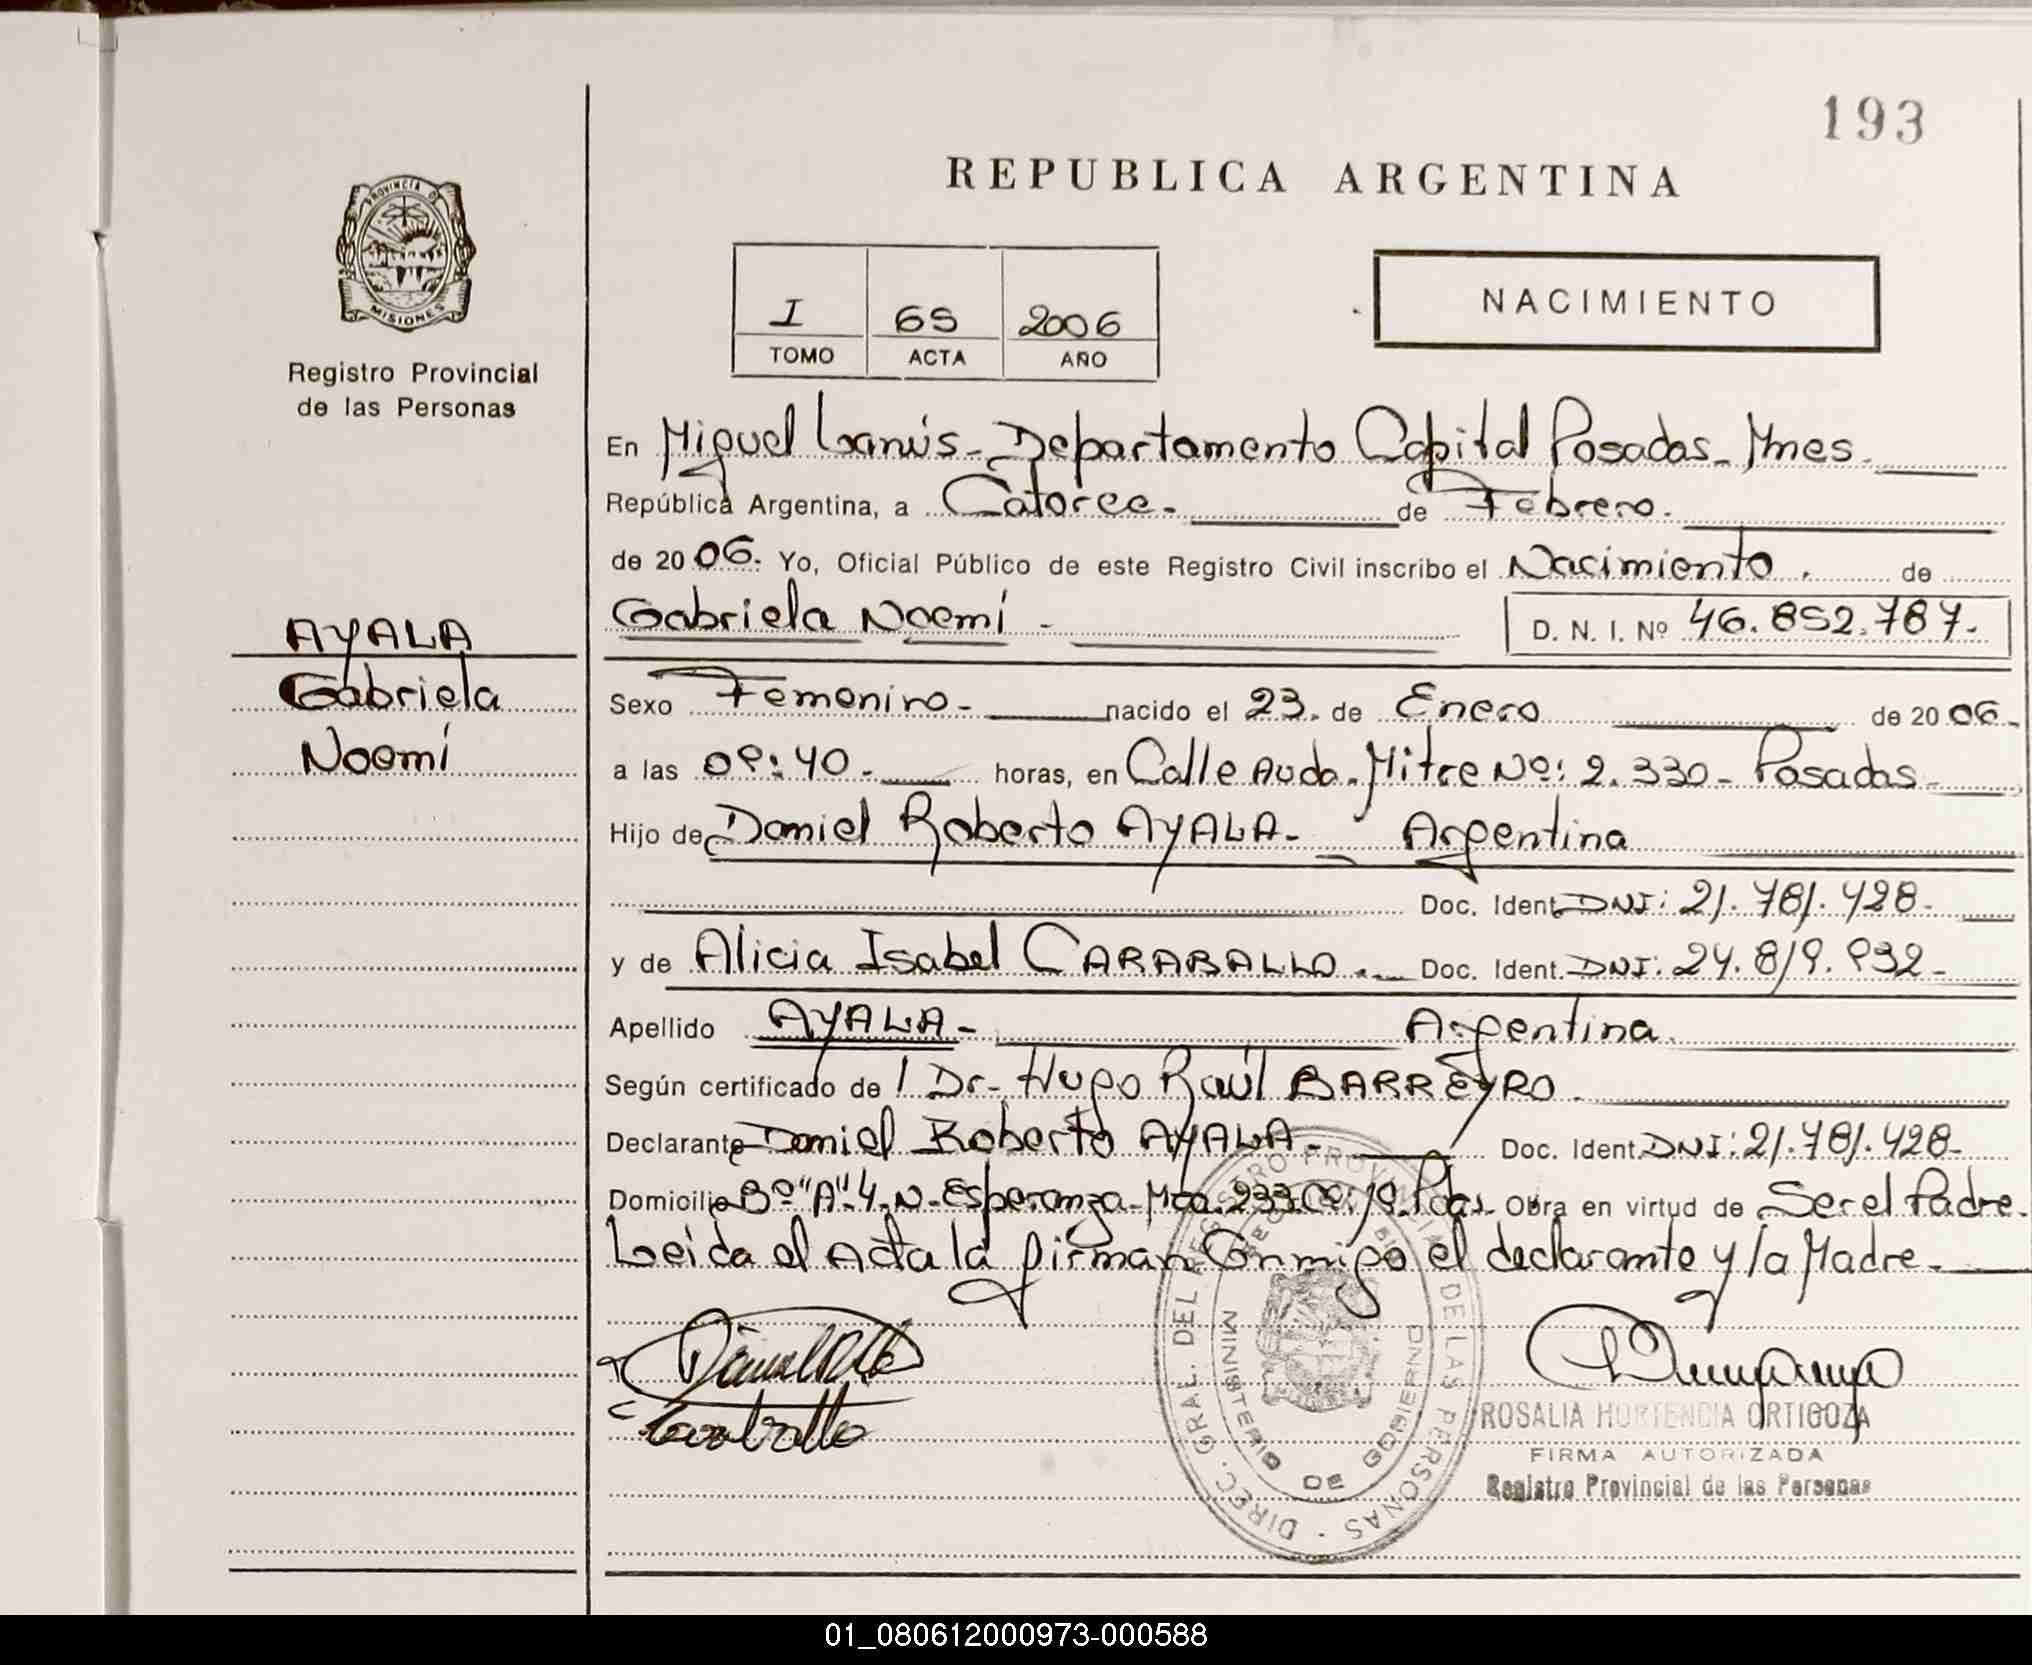 193
REPUBLICA ARGENTINA
PROVINCIA DE
MISIONES
Registro Provincial
de las Personas
I 65 2006
TOMO ACTA AÑO
NACIMIENTO
En Miguel Lanús - Departamento Capital Posadas - Mnes.
República Argentina, a Catorce - de Febrero.
de 2006. Yo, Oficial Público de este Registro Civil inscribo el Nacimiento. de
Gabriela Noemí - D. N. I. Nº 46.852.787.
AYALA
Gabriela
Noemí
Sexo Femenino - nacido el 23. de Enero de 2006.
a las 09:40 - horas, en Calle Avda. Mitre Nº: 2.330 - Posadas
Hijo de Daniel Roberto AYALA - Argentina
Doc. Ident. DNI: 21.781.428 -
y de Alicia Isabel CARABALLO. - Doc. Ident. DNI: 24.819.932 -
Apellido AYALA - Argentina.
Según certificado de / Dr. Hugo Raúl BARREYRO.
Declarante Daniel Roberto AYALA - Doc. Ident. DNI: 21.781.428 -
Domicilio Bº "A"-4-N-Esperanza-Mza.233 Pdas. Obra en virtud de Ser el Padre.
Leida el Acta la firman Conmigo el declarante y la Madre -
DIREC. GRAL. DEL REGISTRO PROVINCIAL DE LAS PERSONAS
MINISTERIO DE GOBIERNO
Caraballo
ROSALIA HORTENCIA ORTIGOZA
FIRMA AUTORIZADA
Registro Provincial de las Personas
01_080612000973-000588